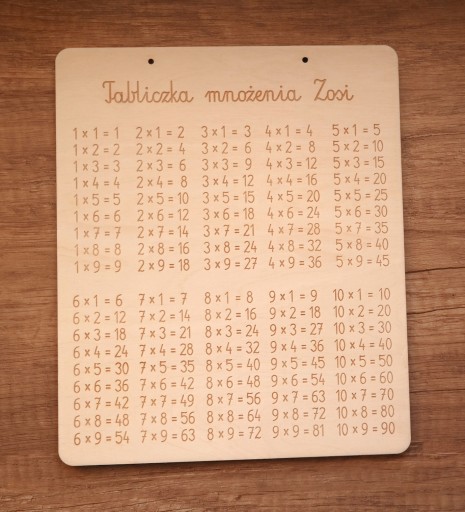 Tabliczka mnożenia Zosi
1 x 1 = 1 2 x 1 = 2 3 x 1 = 3 4 x 1 = 4 5 x 1 = 5
1 x 2 = 2 2 x 2 = 4 3 x 2 = 6 4 x 2 = 8 5 x 2 = 10
1 x 3 = 3 2 x 3 = 6 3 x 3 = 9 4 x 3 = 12 5 x 3 = 15
1 x 4 = 4 2 x 4 = 8 3 x 4 = 12 4 x 4 = 16 5 x 4 = 20
1 x 5 = 5 2 x 5 = 10 3 x 5 = 15 4 x 5 = 20 5 x 5 = 25
1 x 6 = 6 2 x 6 = 12 3 x 6 = 18 4 x 6 = 24 5 x 6 = 30
1 x 7 = 7 2 x 7 = 14 3 x 7 = 21 4 x 7 = 28 5 x 7 = 35
1 x 8 = 8 2 x 8 = 16 3 x 8 = 24 4 x 8 = 32 5 x 8 = 40
1 x 9 = 9 2 x 9 = 18 3 x 9 = 27 4 x 9 = 36 5 x 9 = 45
6 x 1 = 6 7 x 1 = 7 8 x 1 = 8 9 x 1 = 9 10 x 1 = 10
6 x 2 = 12 7 x 2 = 14 8 x 2 = 16 9 x 2 = 18 10 x 2 = 20
6 x 3 = 18 7 x 3 = 21 8 x 3 = 24 9 x 3 = 27 10 x 3 = 30
6 x 4 = 24 7 x 4 = 28 8 x 4 = 32 9 x 4 = 36 10 x 4 = 40
6 x 5 = 30 7 x 5 = 35 8 x 5 = 40 9 x 5 = 45 10 x 5 = 50
6 x 6 = 36 7 x 6 = 42 8 x 6 = 48 9 x 6 = 54 10 x 6 = 60
6 x 7 = 42 7 x 7 = 49 8 x 7 = 56 9 x 7 = 63 10 x 7 = 70
6 x 8 = 48 7 x 8 = 56 8 x 8 = 64 9 x 8 = 72 10 x 8 = 80
6 x 9 = 54 7 x 9 = 63 8 x 9 = 72 9 x 9 = 81 10 x 9 = 90